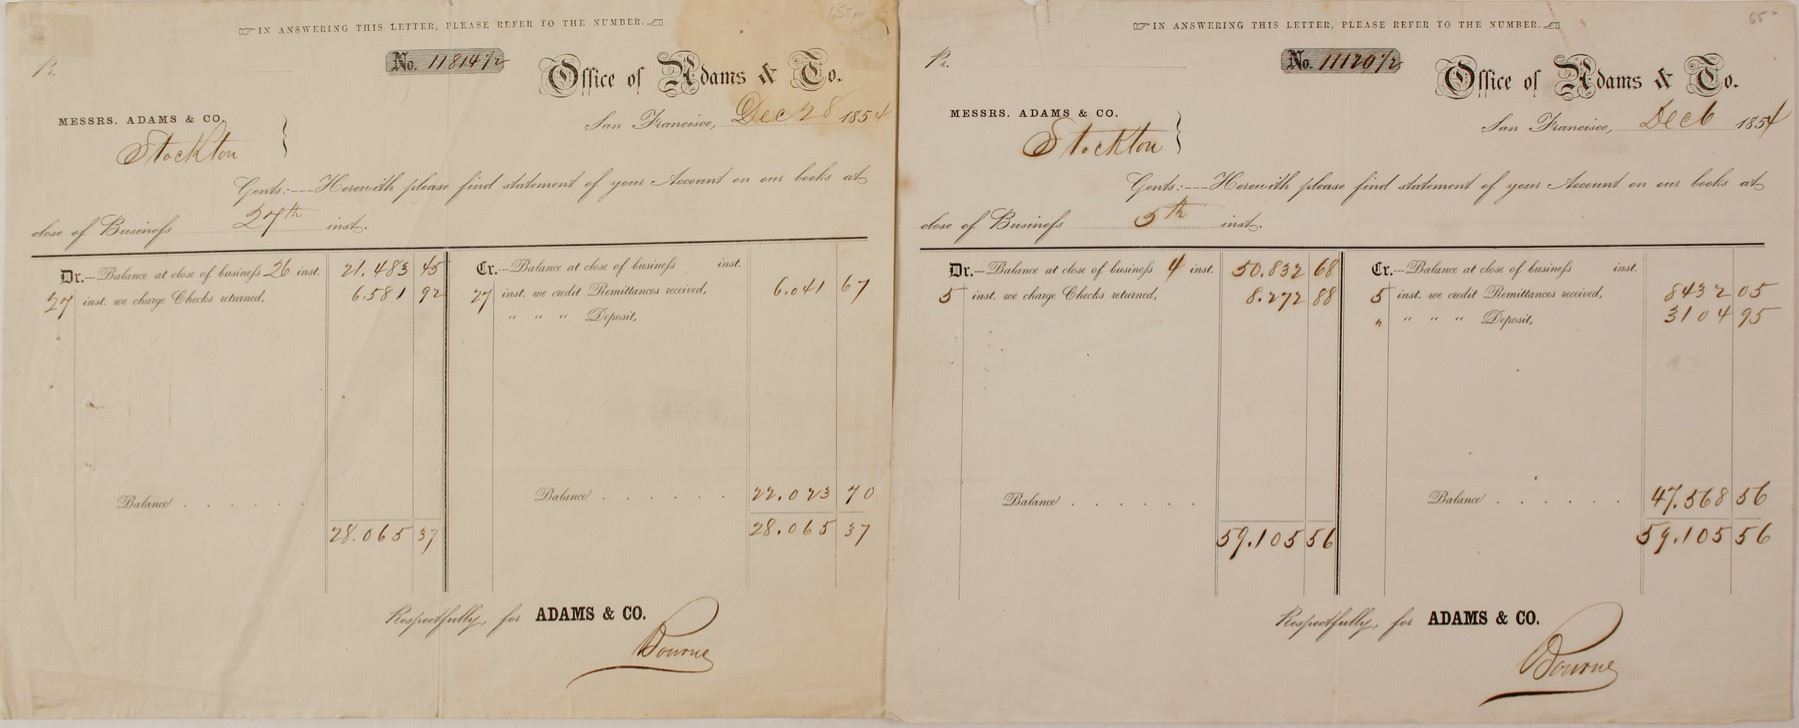 IN ANSWERING THIS LETTER, PLEASE REFER TO THE NUMBER.
Pr.
No. 11814 1/2
Office of Adams & Co.
San Francisco, Dec 28 1854
MESSRS. ADAMS & CO.
Stockton
Gents:—Herewith please find statement of your Account on our books at
close of Business 27th inst.
Dr.—Balance at close of business 26 inst. 21.483 45
27 inst. we charge Checks returned, 6.581 92
Cr.—Balance at close of business inst.
27 inst. we credit Remittances received, 6.041 67
" " " Deposit,
Balance . . . . . .
Balance . . . . . . 22.023 70
28.065 37
28.065 37
Respectfully, for ADAMS & CO.
Bourne
65-
IN ANSWERING THIS LETTER, PLEASE REFER TO THE NUMBER.
Pr.
No. 11120 1/2
Office of Adams & Co.
San Francisco, Dec 6 1854
MESSRS. ADAMS & CO.
Stockton
Gents:—Herewith please find statement of your Account on our books at
close of Business 5th inst.
Dr.—Balance at close of business 4 inst. 50.832 68
5 inst. we charge Checks returned, 8.272 88
Cr.—Balance at close of business inst.
5 inst. we credit Remittances received, 8432 05
" " " " Deposit, 3104 95
Balance . . . . . .
Balance . . . . . . 47.568 56
59.105 56
59.105 56
Respectfully, for ADAMS & CO.
Bourne